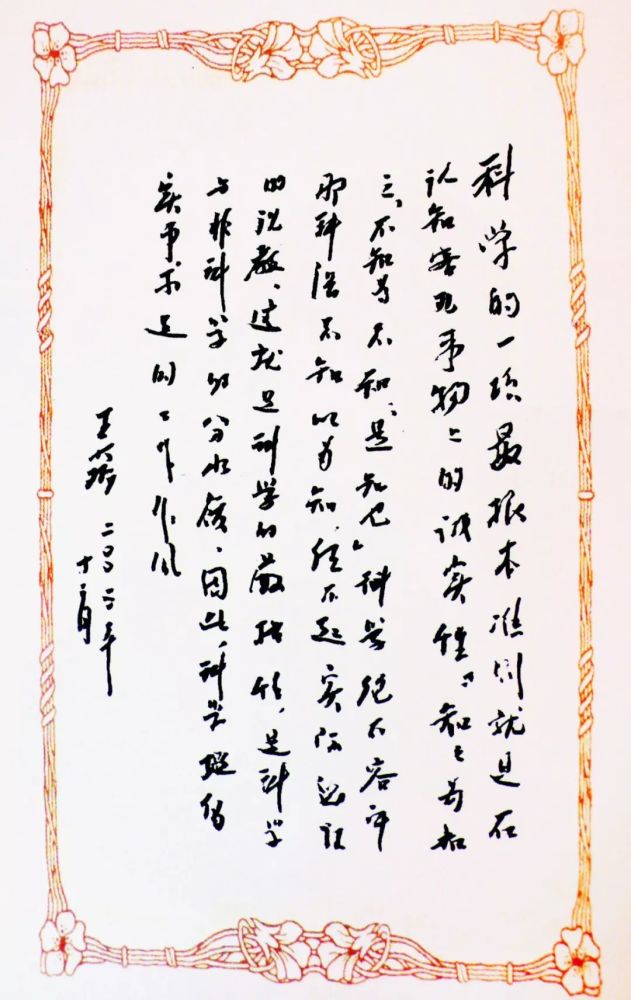 科学的一项最根本准则就是在
认知客观事物上的诚实性。“知之为知
之，不知为不知，是知也”科学绝不容许
那种强不知以为知，经不起实际验证
的说教，这就是科学的严格性，是科学
与非科学的分水岭，因此，科学提倡
实事求是的工作作风
王